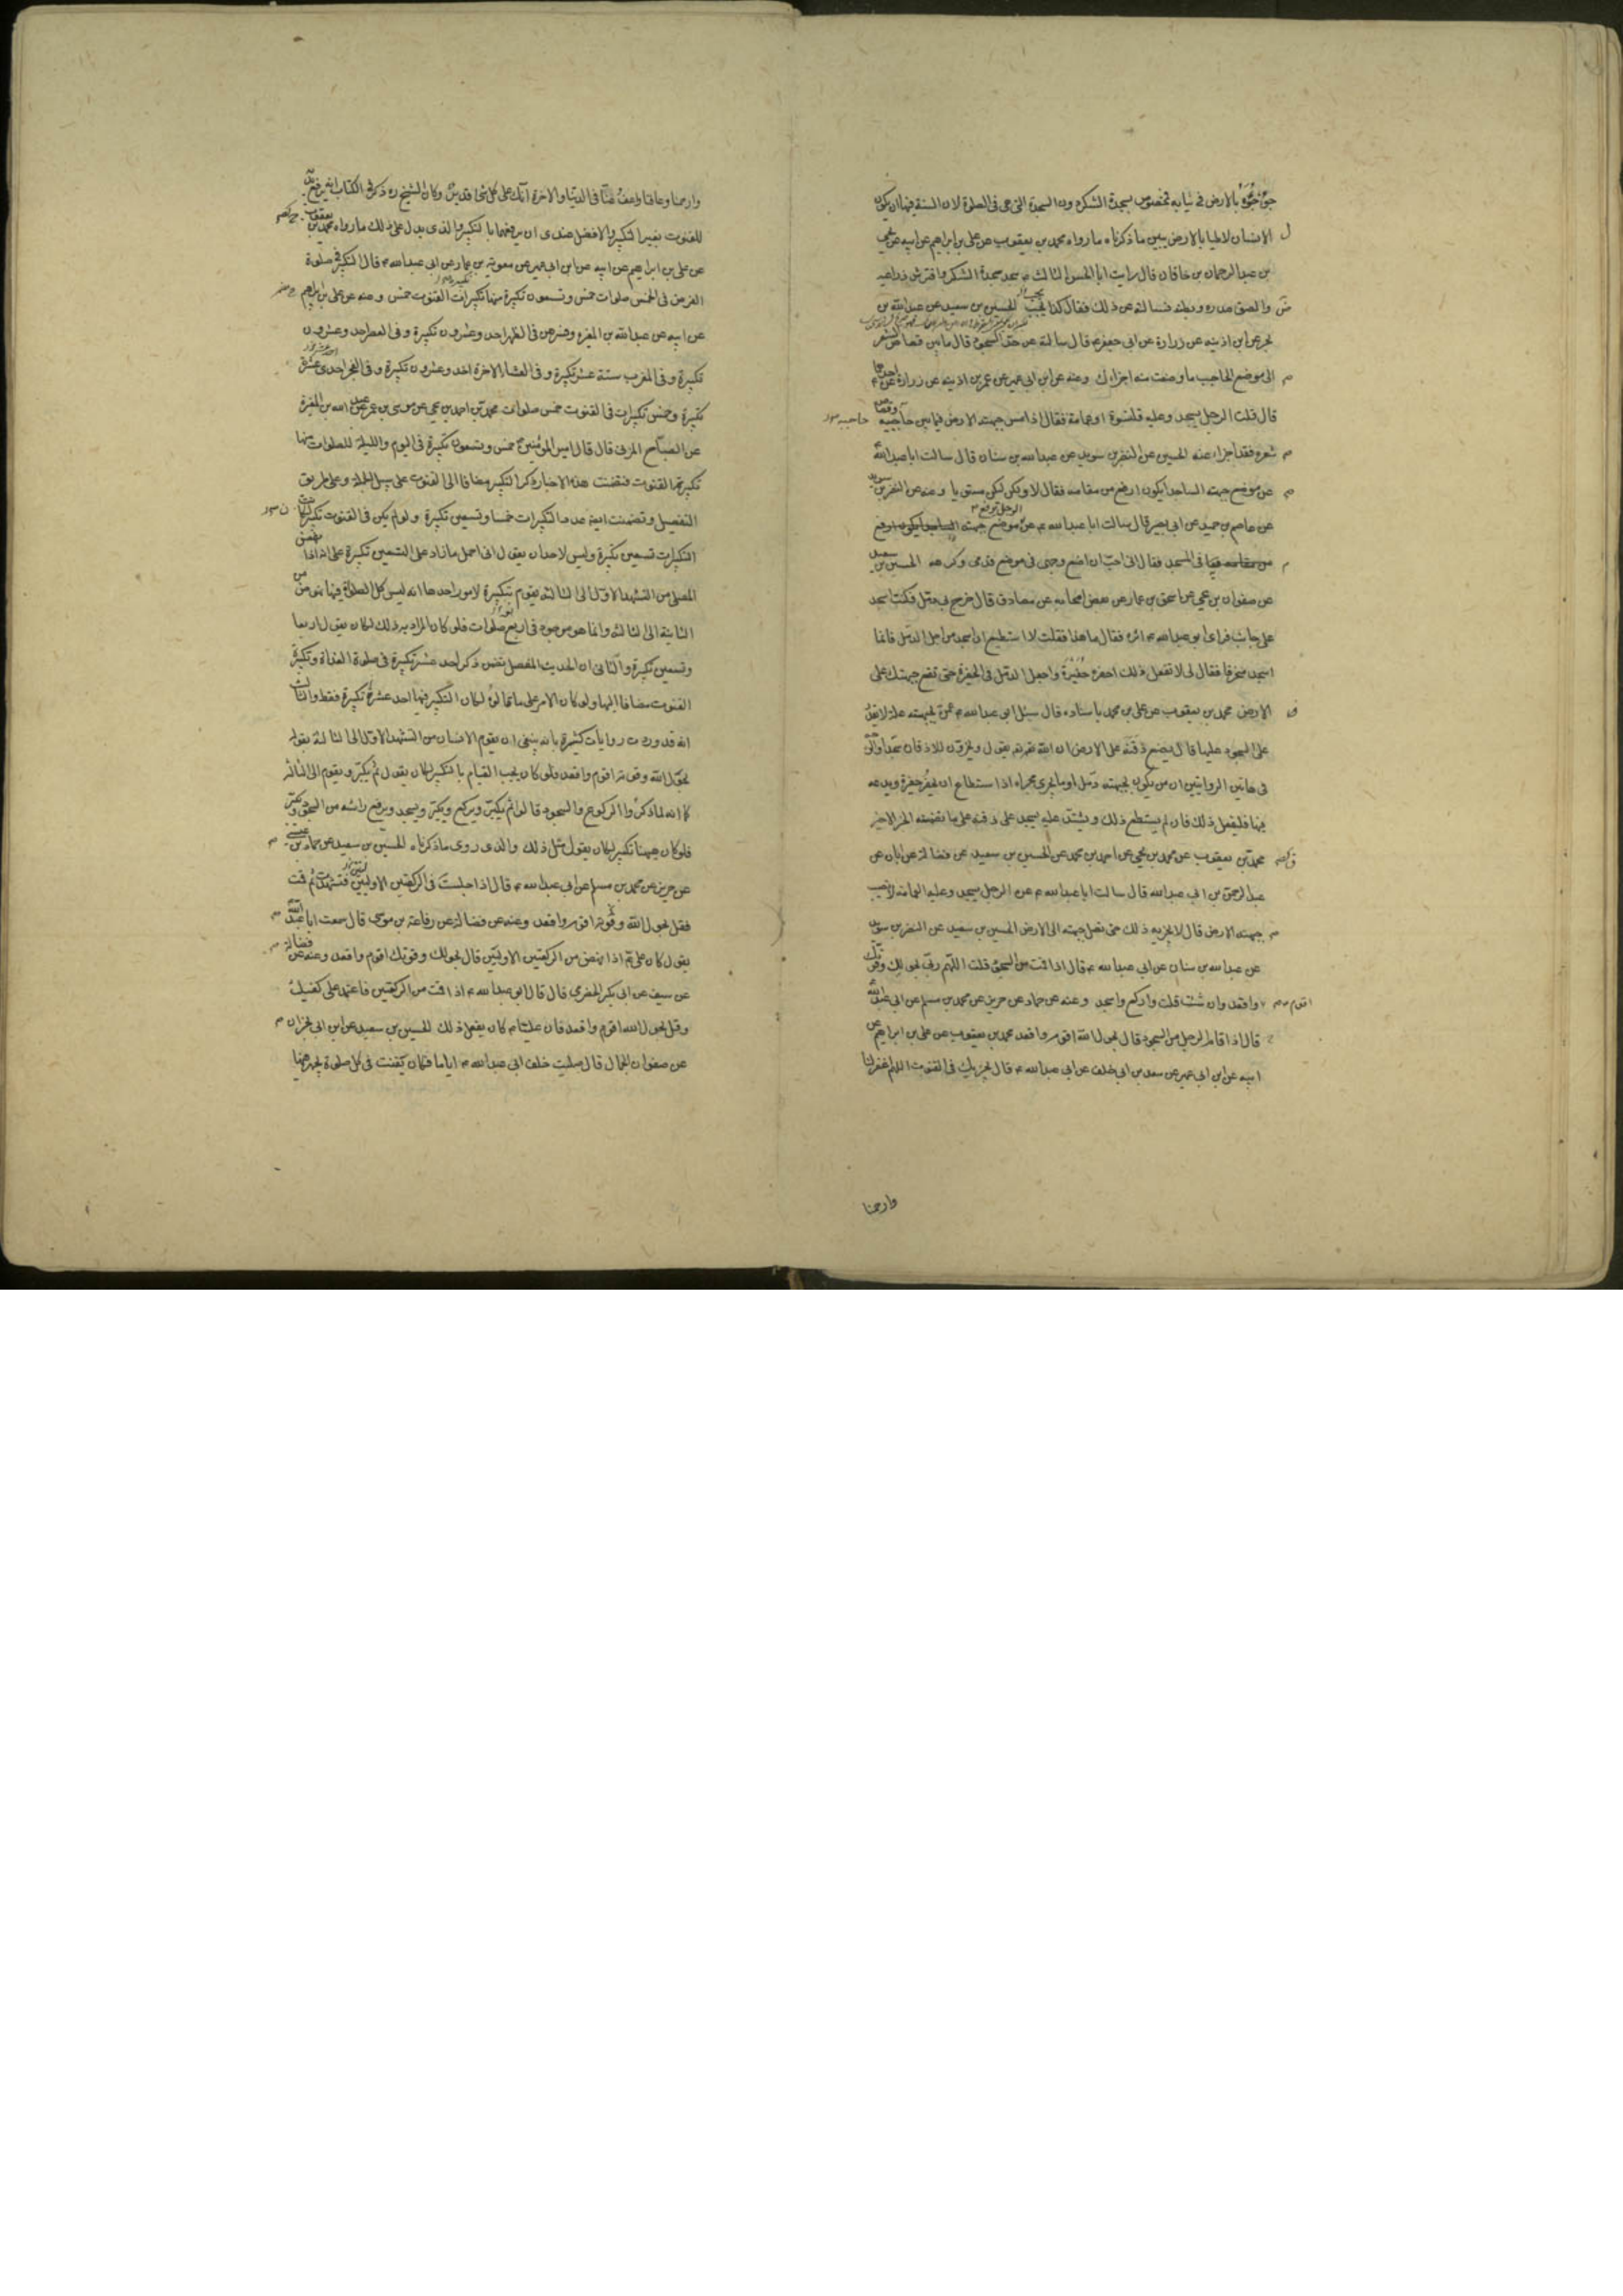 جؤجؤه بالارض في ثيابه مخصوص بسجدة الشكر دون السجدة التي هي في الصلوة لان السنة فيها ان يكون
الانسان لاطيا بالارض يبين ما ذكرناه ما رواه محمد بن يعقوب عن علي بن ابراهيم عن ابيه عن يحيى
بن عبد الرحمان بن خاقان قال رايت ابا الحسن الثالث ع سجد سجدة الشكر فافترش ذراعيه
والصق صدره وبطنه فسالته عن ذلك فقال كذا يجب الحسين بن سعيد عن عبد الله بن
بحر عن ابن اذينه عن زرارة عن ابي جعفر ع قال سالته عن حد السجود قال ما بين قصاص الشعر
الى موضع الحاجب ما وضعت منه اجزاك وعنه عن ابن ابي عمير عن عمر بن اذينه عن زرارة عن احدهما ع
قال قلت الرجل يسجد وعليه قلنسوة او عمامة فقال اذا مس جبهته الارض فيما بين حاجبيه وقصاص
شعره فقد اجزاء عنه الحسين عن النضر بن سويد عن عبد الله بن سنان قال سالت ابا عبد الله ع
عن موضع جبهة الساجد ايكون ارفع من مقامه فقال لا ولكن ليكن مستويا وعنه عن النضر بن سويد
عن عاصم بن حميد عن ابي بصير قال سالت ابا عبد الله ع عن الرجل يرفع موضع جبهته
في المسجد فقال اني احب ان اضع وجهي في موضع قدمي وكرهه الحسين بن سعيد
عن صفوان بن يحيى عن اسحق بن عمار عن بعض اصحابه عن مصادف قال خرج بي دمل فكنت اسجد
على جانب فراى ابو عبد الله ع اثره فقال ما هذا فقلت لا استطيع ان اسجد من اجل الدمل فانما
اسجد منحرفا فقال لي لا تفعل ذلك احفر حفيرة واجعل الدمل في الحفرة حتى تقع جبهتك على
الارض محمد بن يعقوب عن علي بن محمد باسناده قال سئل ابو عبد الله ع عمن بجبهته علة لا يقدر
على السجود عليها قال يضع ذقنه على الارض ان الله تعالى يقول ويخرون للاذقان سجدا
في هاتين الروايتين ان من يكون بجبهته دمل او ما يجري مجراه اذا استطاع ان يحفر حفيرة ويدعه
فيها فليفعل ذلك فان لم يستطع ذلك ويشتد عليه يسجد على ذقنه على ما تضمنه الخبر الاخير
محمد بن يعقوب عن محمد بن يحيى عن احمد بن محمد عن الحسين بن سعيد عن فضالة عن ابان عن
عبد الرحمن بن ابي عبد الله قال سالت ابا عبد الله ع عن الرجل يسجد وعليه العمامة لا تصيب
جبهته الارض قال لا يجزيه ذلك حتى تصل جبهته الى الارض الحسين بن سعيد عن النضر بن سويد
عن عبد الله بن سنان عن ابي عبد الله ع قال اذا قمت من السجود قلت اللهم ربي بحولك وقوتك
اقوم واقعد وان شئت قلت واركع واسجد وعنه عن حماد عن حريز عن محمد بن مسلم عن ابي عبد الله
قال اذا قام الرجل من السجود قال بحول الله اقوم واقعد محمد بن يعقوب عن علي بن ابراهيم عن
ابيه عن ابن ابي عمير عن سعد بن ابي خلف عن ابي عبد الله ع قال يجزيك في القنوت اللهم اغفر لنا
وارحمنا
وارحمنا وعافنا واعف عنا في الدنيا والاخرة انك على كل شئ قدير وكان الشيخ ره ذكر في الكتاب انه يرفع يديه
للقنوت بغير التكبير والافضل عندي ان يرفعهما بالتكبير والذي يدل على ذلك ما رواه محمد بن يعقوب
عن علي بن ابراهيم عن ابيه عن ابن ابي عمير عن معوية بن عمار عن ابي عبد الله ع قال التكبير في صلوة
الفرض في الخمس صلوات خمس وتسعون تكبيرة منها تكبيرات القنوت خمس وعنه عن علي بن ابراهيم
عن ابيه عن عبد الله بن المغيرة وفسرهن في الظهر احد وعشرون تكبيرة وفي العصر احد وعشرون
تكبيرة وفي المغرب ستة عشر تكبيرة وفي العشاء الاخرة احد وعشرون تكبيرة وفي الفجر احدى عشرة
تكبيرة وخمس تكبيرات في القنوت خمس صلوات محمد بن احمد بن يحيى عن موسى بن عمر عن عبد الله بن المغيرة
عن الصباح المزني قال قال امير المؤمنين ع خمس وتسعون تكبيرة في اليوم والليلة للصلوات منها
تكبيرة القنوت فتضمنت هذه الاخبار ذكر التكبير مضافا الى القنوت على سبيل الجملة وعلى طريق
التفصيل وتضمنت ايضا عدد التكبيرات خمسا وتسعين تكبيرة ولو لم يكن في القنوت تكبير لكانت
التكبيرات تسعين تكبيرة وليس لاحد ان يقول اني احمل ما زاد على التسعين تكبيرة على انه اذا نهض
المصلي من التشهد الاول الى الثالثة يقوم بتكبيرة لامور احدها انه ليس كل الصلوات فيها نهوض من
الثانية الى الثالثة وانما هو موجود في اربع صلوات فلو كان المراد به ذلك لكان يقول اربعا
وتسعين تكبيرة والثاني ان الحديث المفصل تضمن ذكر احد عشر تكبيرة في صلوة الغداة وتكبيرة
القنوت مضافا اليها ولو كان الامر على ما قالوه لكان التكبير فيها احد عشرة تكبيرة فقط والثالث
انه قد وردت روايات كثيرة بانه ينبغي ان يقوم الانسان من التشهد الاول الى الثالثة بقوله
بحول الله وقوته اقوم واقعد فلو كان يجب القيام بالتكبير لكان يقول ثم يكبر ويقوم الى الثالثة
كما انه لما ذكروا الركوع والسجود قالوا ثم يكبر ويركع ويكبر ويسجد ويرفع راسه من السجود ويكبر
فلو كان ههنا تكبير لكان يقول مثل ذلك والذي روى ما ذكرناه الحسين بن سعيد عن حماد بن عيسى
عن حريز عن محمد بن مسلم عن ابي عبد الله ع قال اذا جلست في الركعتين الاوليين فتشهدت ثم قمت
فقل بحول الله وقوته اقوم واقعد وعنه عن فضالة عن رفاعة بن موسى قال سمعت ابا عبد الله
يقول كان علي ع اذا نهض من الركعتين الاوليين قال بحولك وقوتك اقوم واقعد وعنه عن فضالة
عن سيف عن ابي بكر الحضرمي قال قال ابو عبد الله ع اذا قمت من الركعتين فاعتمد على كفيك
وقل بحول الله اقوم واقعد فان عليا ع كان يفعل ذلك الحسين بن سعيد عن ابن ابي نجران
عن صفوان الجمال قال صليت خلف ابي عبد الله ع اياما فكان يقنت في كل صلوة يجهر فيها